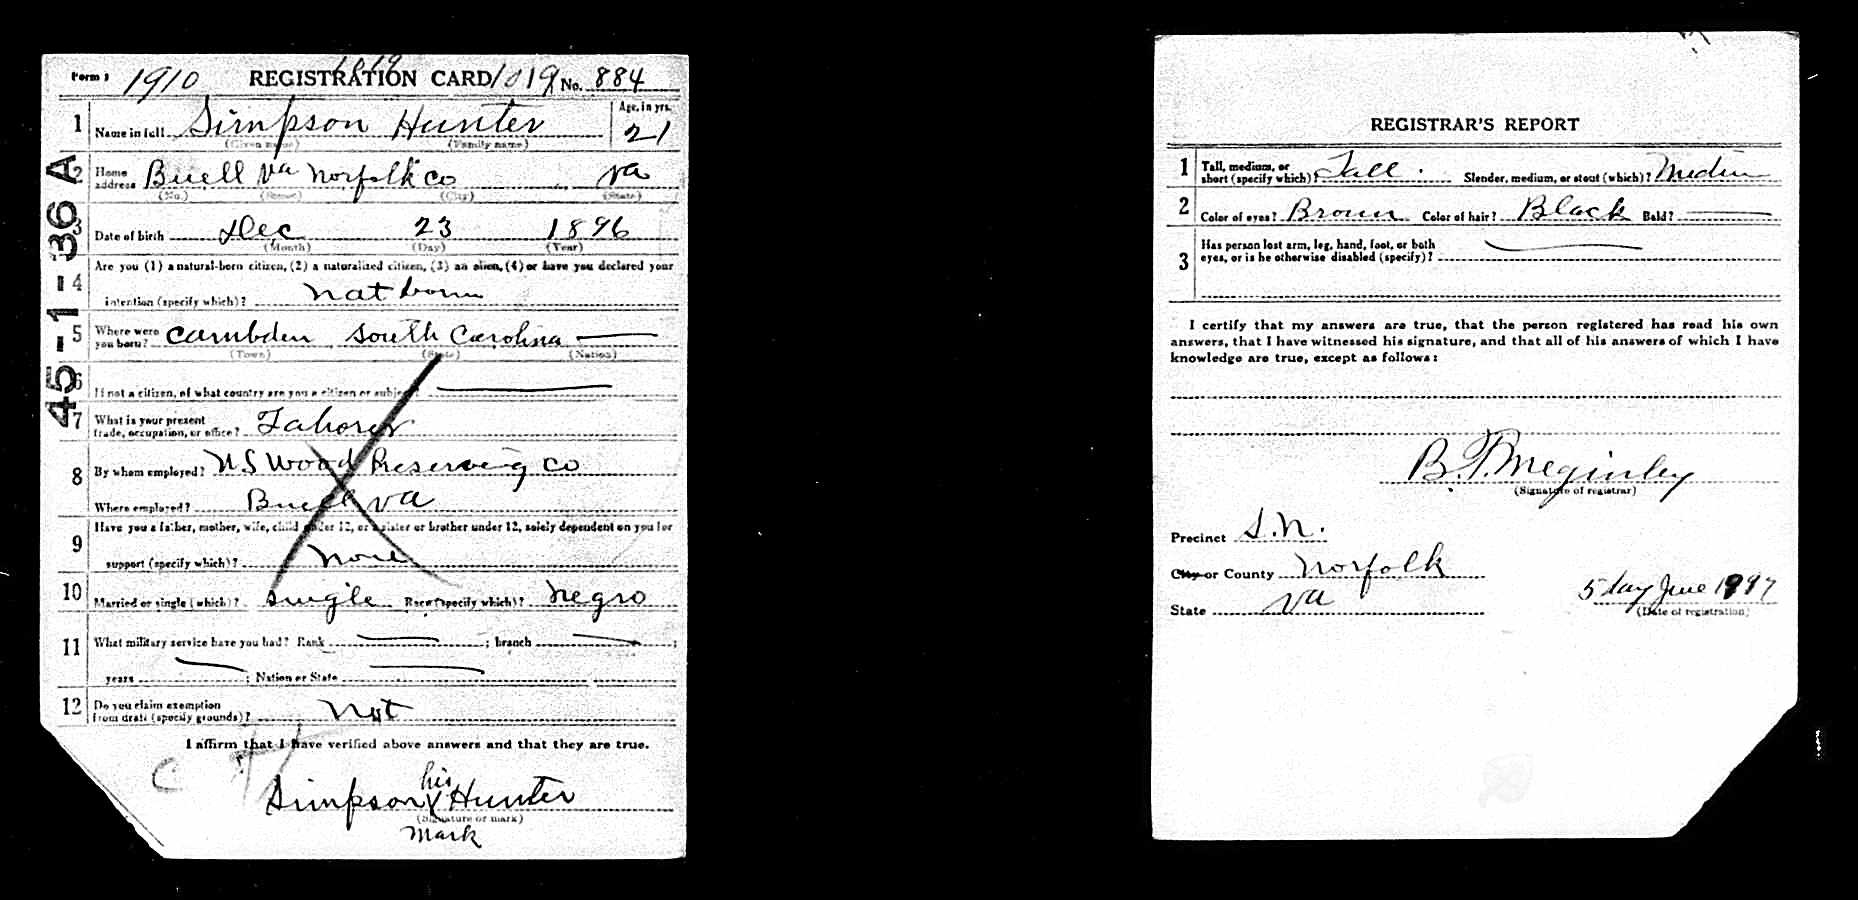 Form 1 1910 REGISTRATION CARD 1019 No. 884
1019
1 Name in full Simpson Hunter Age, in yrs. 21
(Given name) (Family name)
2 Home address Buell Va Norfolk Co Va
(No.) (Street) (City) (State)
3 Date of birth Dec 23 1896
(Month) (Day) (Year)
4 Are you (1) a natural-born citizen, (2) a naturalized citizen, (3) an alien, (4) or have you declared your
intention (specify which)? Nat born
5 Where were you born? Cambden South Carolina
(Town) (State) (Nation)
6 If not a citizen, of what country are you a citizen or subject?
7 What is your present trade, occupation, or office? Laborer
8 By whom employed? US Wood Preserving Co
Where employed? Buell Va
9 Have you a father, mother, wife, child under 12, or a sister or brother under 12, solely dependent on you for
support (specify which)? None
10 Married or single (which)? single Race (specify which)? Negro
11 What military service have you had? Rank ; branch ;
years ; Nation or State
12 Do you claim exemption from draft (specify grounds)? Not
I affirm that I have verified above answers and that they are true.
C
his
Simpson X Hunter
(Signature or mark)
Mark
45-1-36 A
REGISTRAR'S REPORT
1 Tall, medium, or short (specify which)? Tall. Slender, medium, or stout (which)? Medium
2 Color of eyes? Brown Color of hair? Black Bald?
3 Has person lost arm, leg, hand, foot, or both
eyes, or is he otherwise disabled (specify)?
I certify that my answers are true, that the person registered has read his own
answers, that I have witnessed his signature, and that all of his answers of which I have
knowledge are true, except as follows:
B. T. Meginley
(Signature of registrar)
Precinct S.N.
City or County Norfolk
State Va
5 day June 1917
(Date of registration)